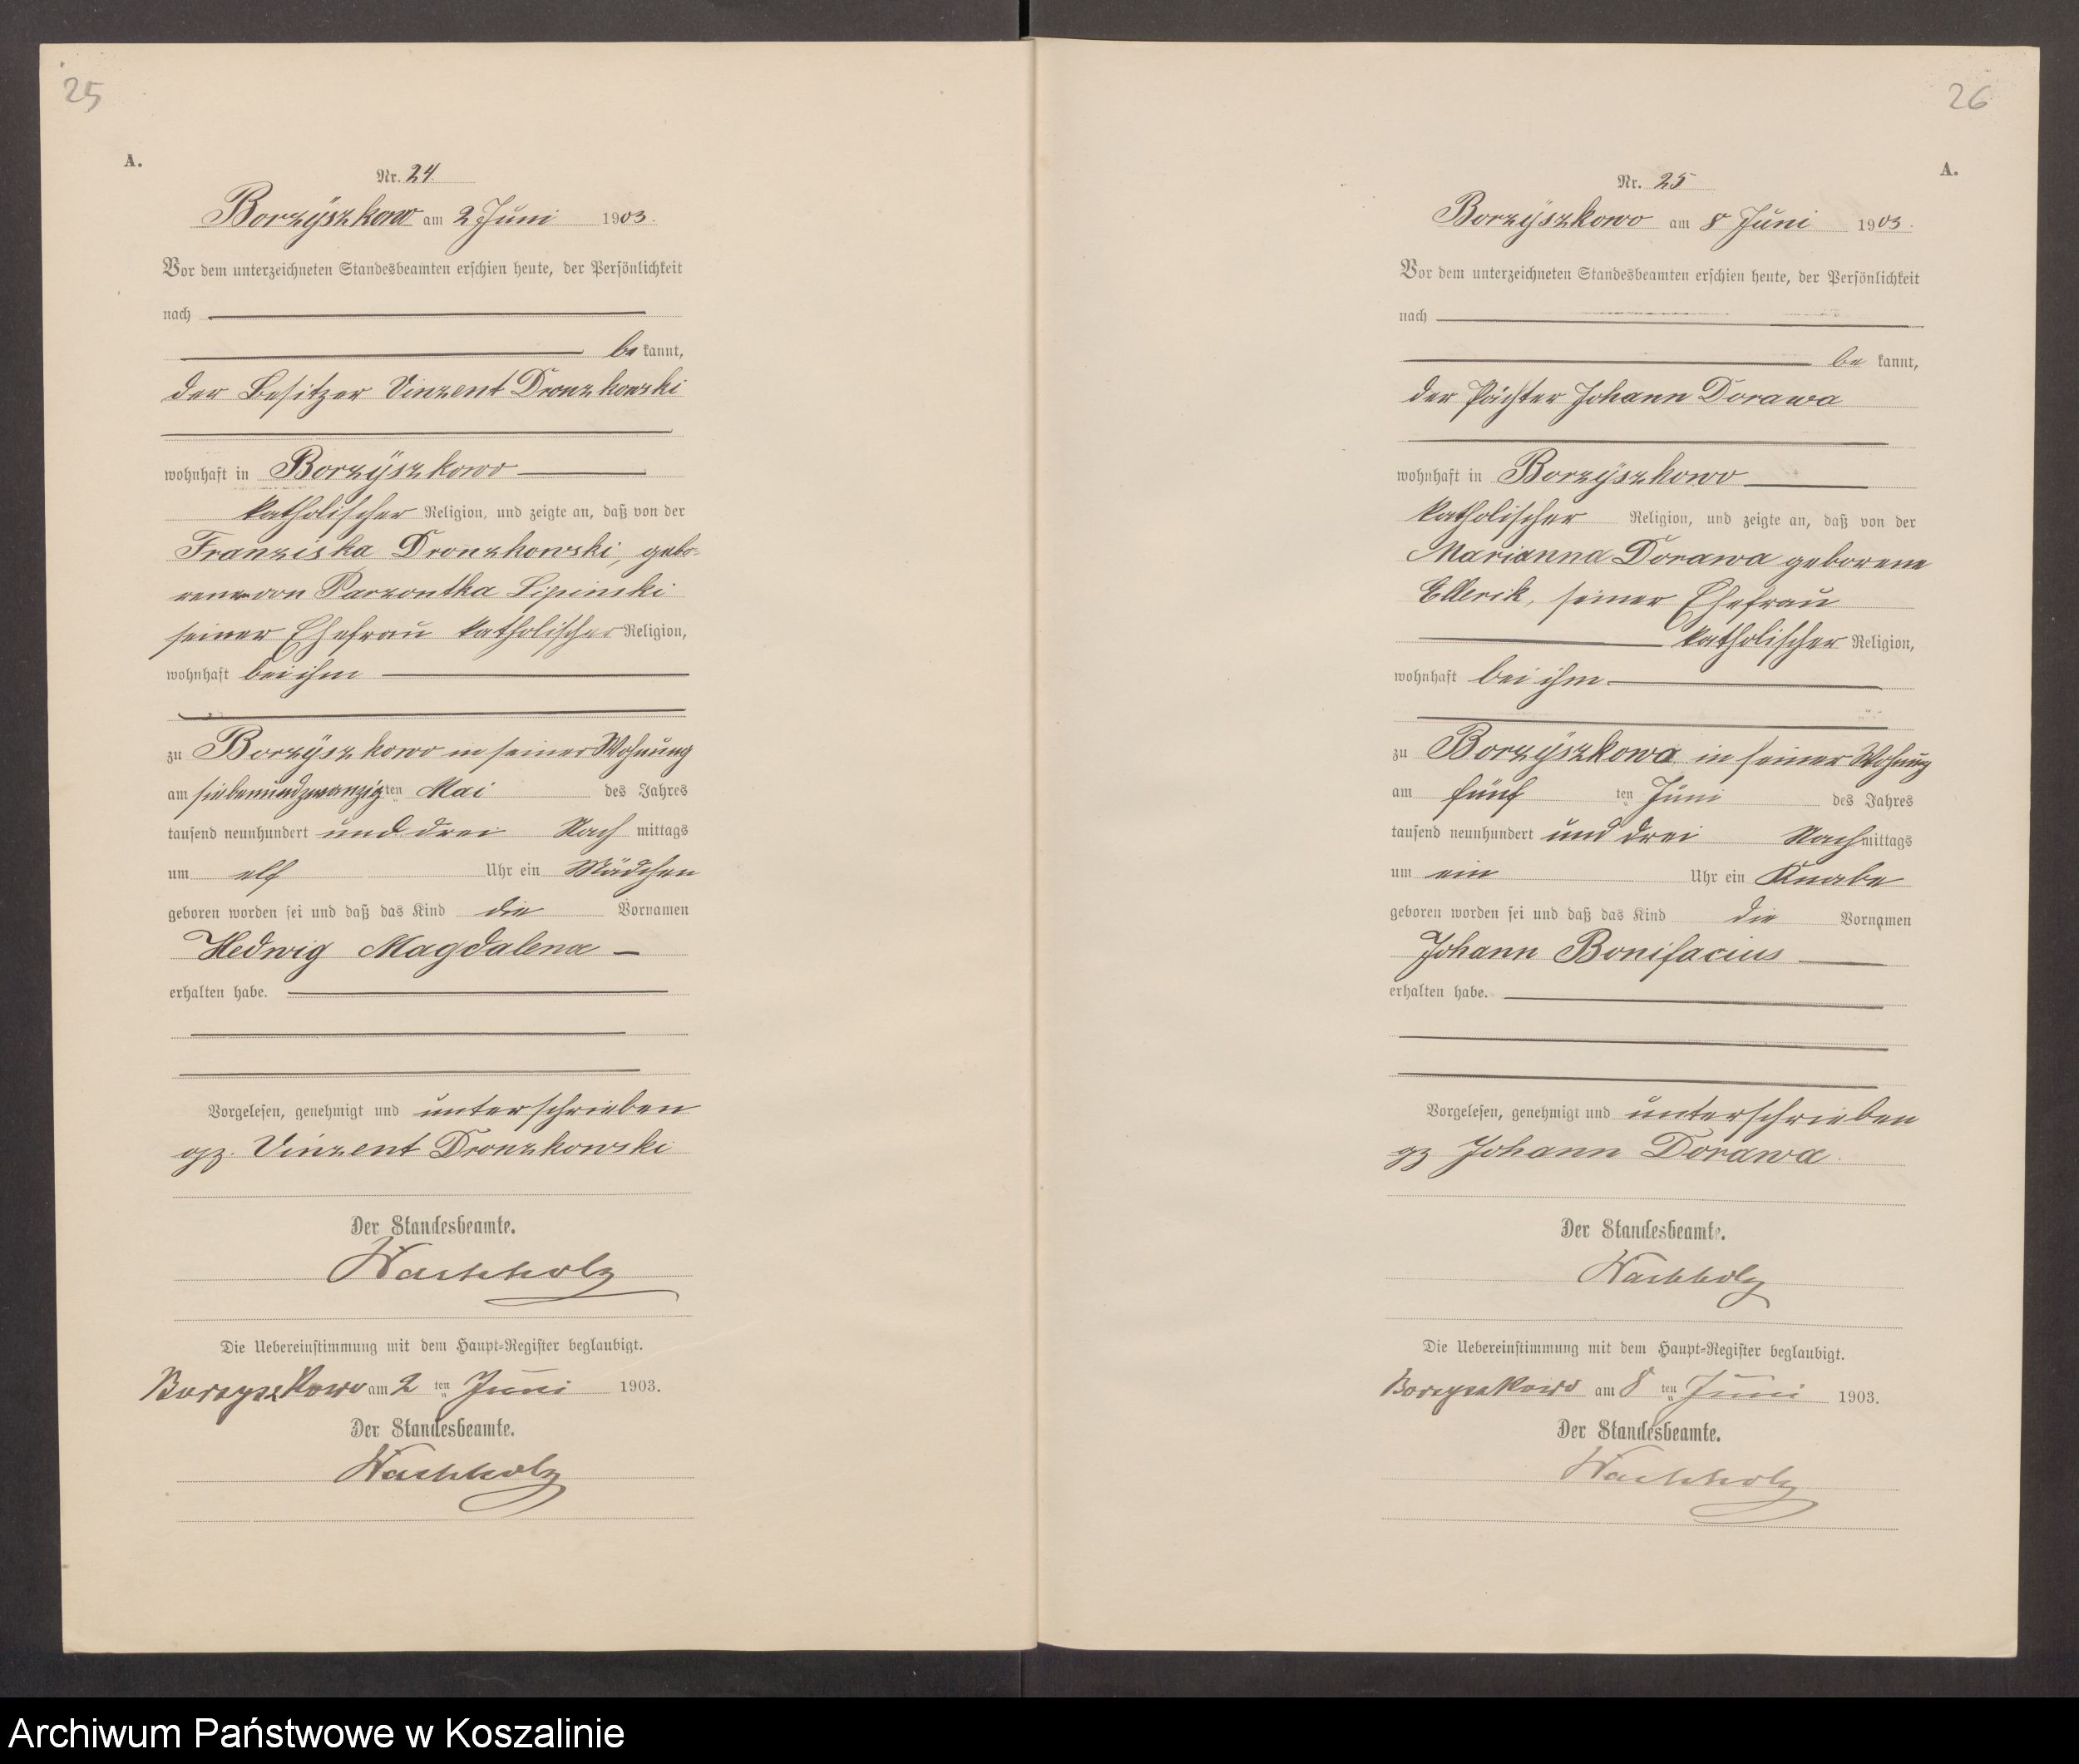 25
A.
Nr. 24
Borzÿszkow am 2 Juni 1903.
Vor dem unterzeichneten Standesbeamten erschien heute, der Persönlichkeit
nach
be kannt,
der Besitzer Vinzent Dronzkowski
wohnhaft in Borzÿszkowo
katholischer Religion, und zeigte an, daß von der
Franziska Dronzkowski, gebo-
rene von Parzontka Lipinski
seiner Ehefrau katholischer Religion,
wohnhaft bei ihm
zu Borzÿszkowo in seiner Wohnung
am siebenundzwanzig ten Mai des Jahres
tausend neunhundert und drei Nach mittags
um elf Uhr ein Mädchen
geboren worden sei und daß das Kind die Vornamen
Hedwig Magdalena
erhalten habe.
Vorgelesen, genehmigt und unterschrieben
gz. Vinzent Dronzkowski
Der Standesbeamte.
Wachholz
Die Uebereinstimmung mit dem Haupt-Register beglaubigt.
Borzyszkowo am 2 ten Juni 1903.
Der Standesbeamte.
Wachholz
26
A.
Nr. 25
Borzÿszkowo am 8 Juni 1903.
Vor dem unterzeichneten Standesbeamten erschien heute, der Persönlichkeit
nach
be kannt,
der Pächter Johann Dorawa
wohnhaft in Borzÿszkowo
katholischer Religion, und zeigte an, daß von der
Marianna Dorawa geborene
Ellerik, seiner Ehefrau
katholischer Religion,
wohnhaft bei ihm
zu Borzÿszkowo in seiner Wohnung
am fünf ten Juni des Jahres
tausend neunhundert und drei Nach mittags
um ein Uhr ein Knabe
geboren worden sei und daß das Kind die Vornamen
Johann Bonifacius
erhalten habe.
Vorgelesen, genehmigt und unterschrieben
gz Johann Dorawa.
Der Standesbeamte.
Wachholz
Die Uebereinstimmung mit dem Haupt-Register beglaubigt.
Borzyszkowo am 8 ten Juni 1903.
Der Standesbeamte.
Wachholz
Archiwum Państwowe w Koszalinie